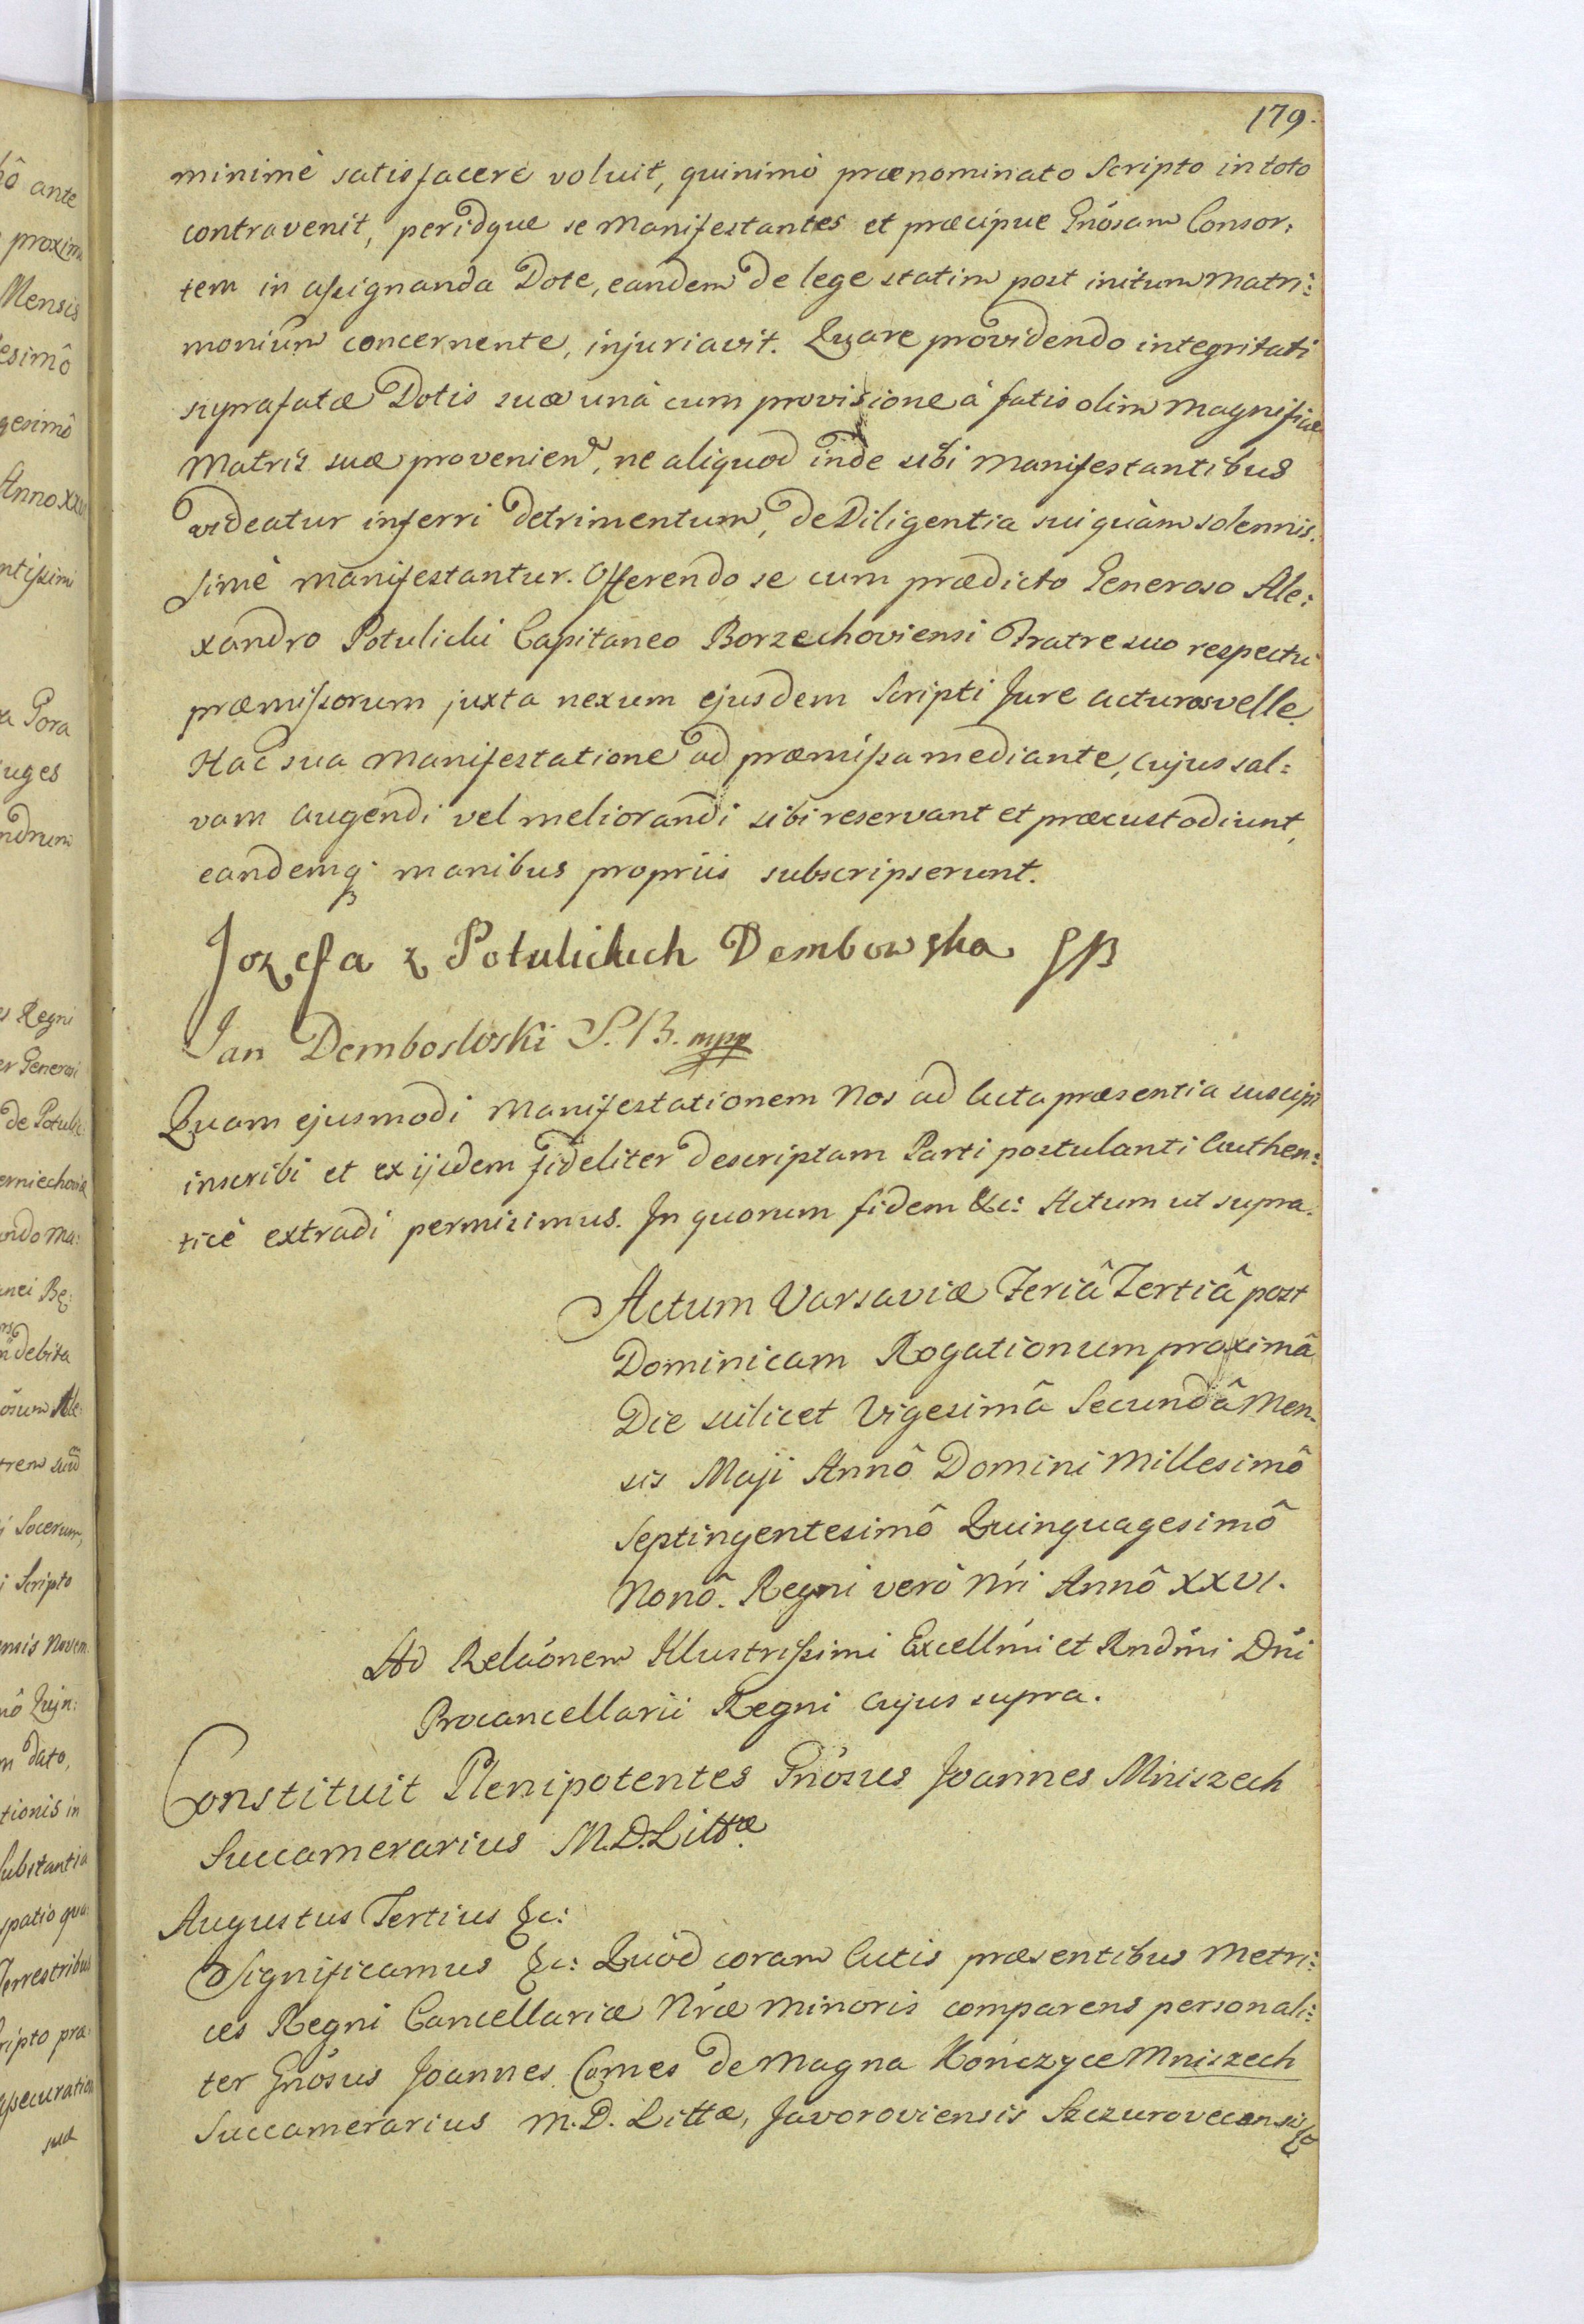 179.
minimè satisfacere voluit, quinimò prænominato Scripto in toto
contravenit, peridque se Manifestantes et præcipue Gnôsam Consor:
tem in assignanda Dote, eandem de lege statim post initum Matri:
monium concernente, injuriavit. Quare providendo integritati
suprafatæ Dotis suæ unà cum provisione à fatis olim Magnificæ
Matris suæ provenien, ne aliquod inde sibi Manifestantibus
videatur inferri detrimentum, de Diligentia sui quàm solennis:
simè manifestantur. Offerendo se cum prædicto Generoso Ale:
xandro Potulicki Capitaneo Borzechoviensi Fratre suo respectu
præmissorum juxta nexum ejusdem Scripti Jure acturos velle.
Hac sua Manifestatione ad præmissa mediante, cujus sal:
vam augendi vel meliorandi sibi reservant et præcustodiunt,
eandemq; manibus propriis subscripserunt.
Jozefa z Potulickich Dembowska SB
Jan Dembowski S.B. mpp
Quam ejusmodi Manifestationem Nos ad Acta præsentia suscipi
inscribi et ex ijsdem fideliter descriptam Parti postulanti Authen:
ticè extradi permisimus. In quorum fidem &c: Actum ut supra.
Actum Varsaviæ Feriâ Tertiâ post
Dominicam Rogationum proximâ
Die scilicet Vigesimâ Secundâ Men:
sis Maji Annô Domini Millesimô
Septingentesimô Quinquagesimô
Nonô. Regni verò Nri Annô XXVI.
Ad Relaónem Illustrissimi Excellmi et Rndmi Dni
Procancellarii Regni cujus supra.
Constituit Plenipotentes Gnôsus Joannes Mniszech
Succamerarius M.D.Littæ
Augustus Tertius &c:
Significamus &c: Quòd coram Actis præsentibus Metri:
ces Regni Cancellariæ Nræ Minoris comparens personali:
ter Gnôsus Joannes Comes de Magna Kończyce Mniszech
Succamerarius M.D. Littæ, Javoroviensis Szczurovecensis &